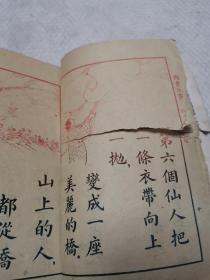 第六個仙人把
一條衣帶向上
一拋，
變成一座
美麗的橋，
山上的人，
都從橋